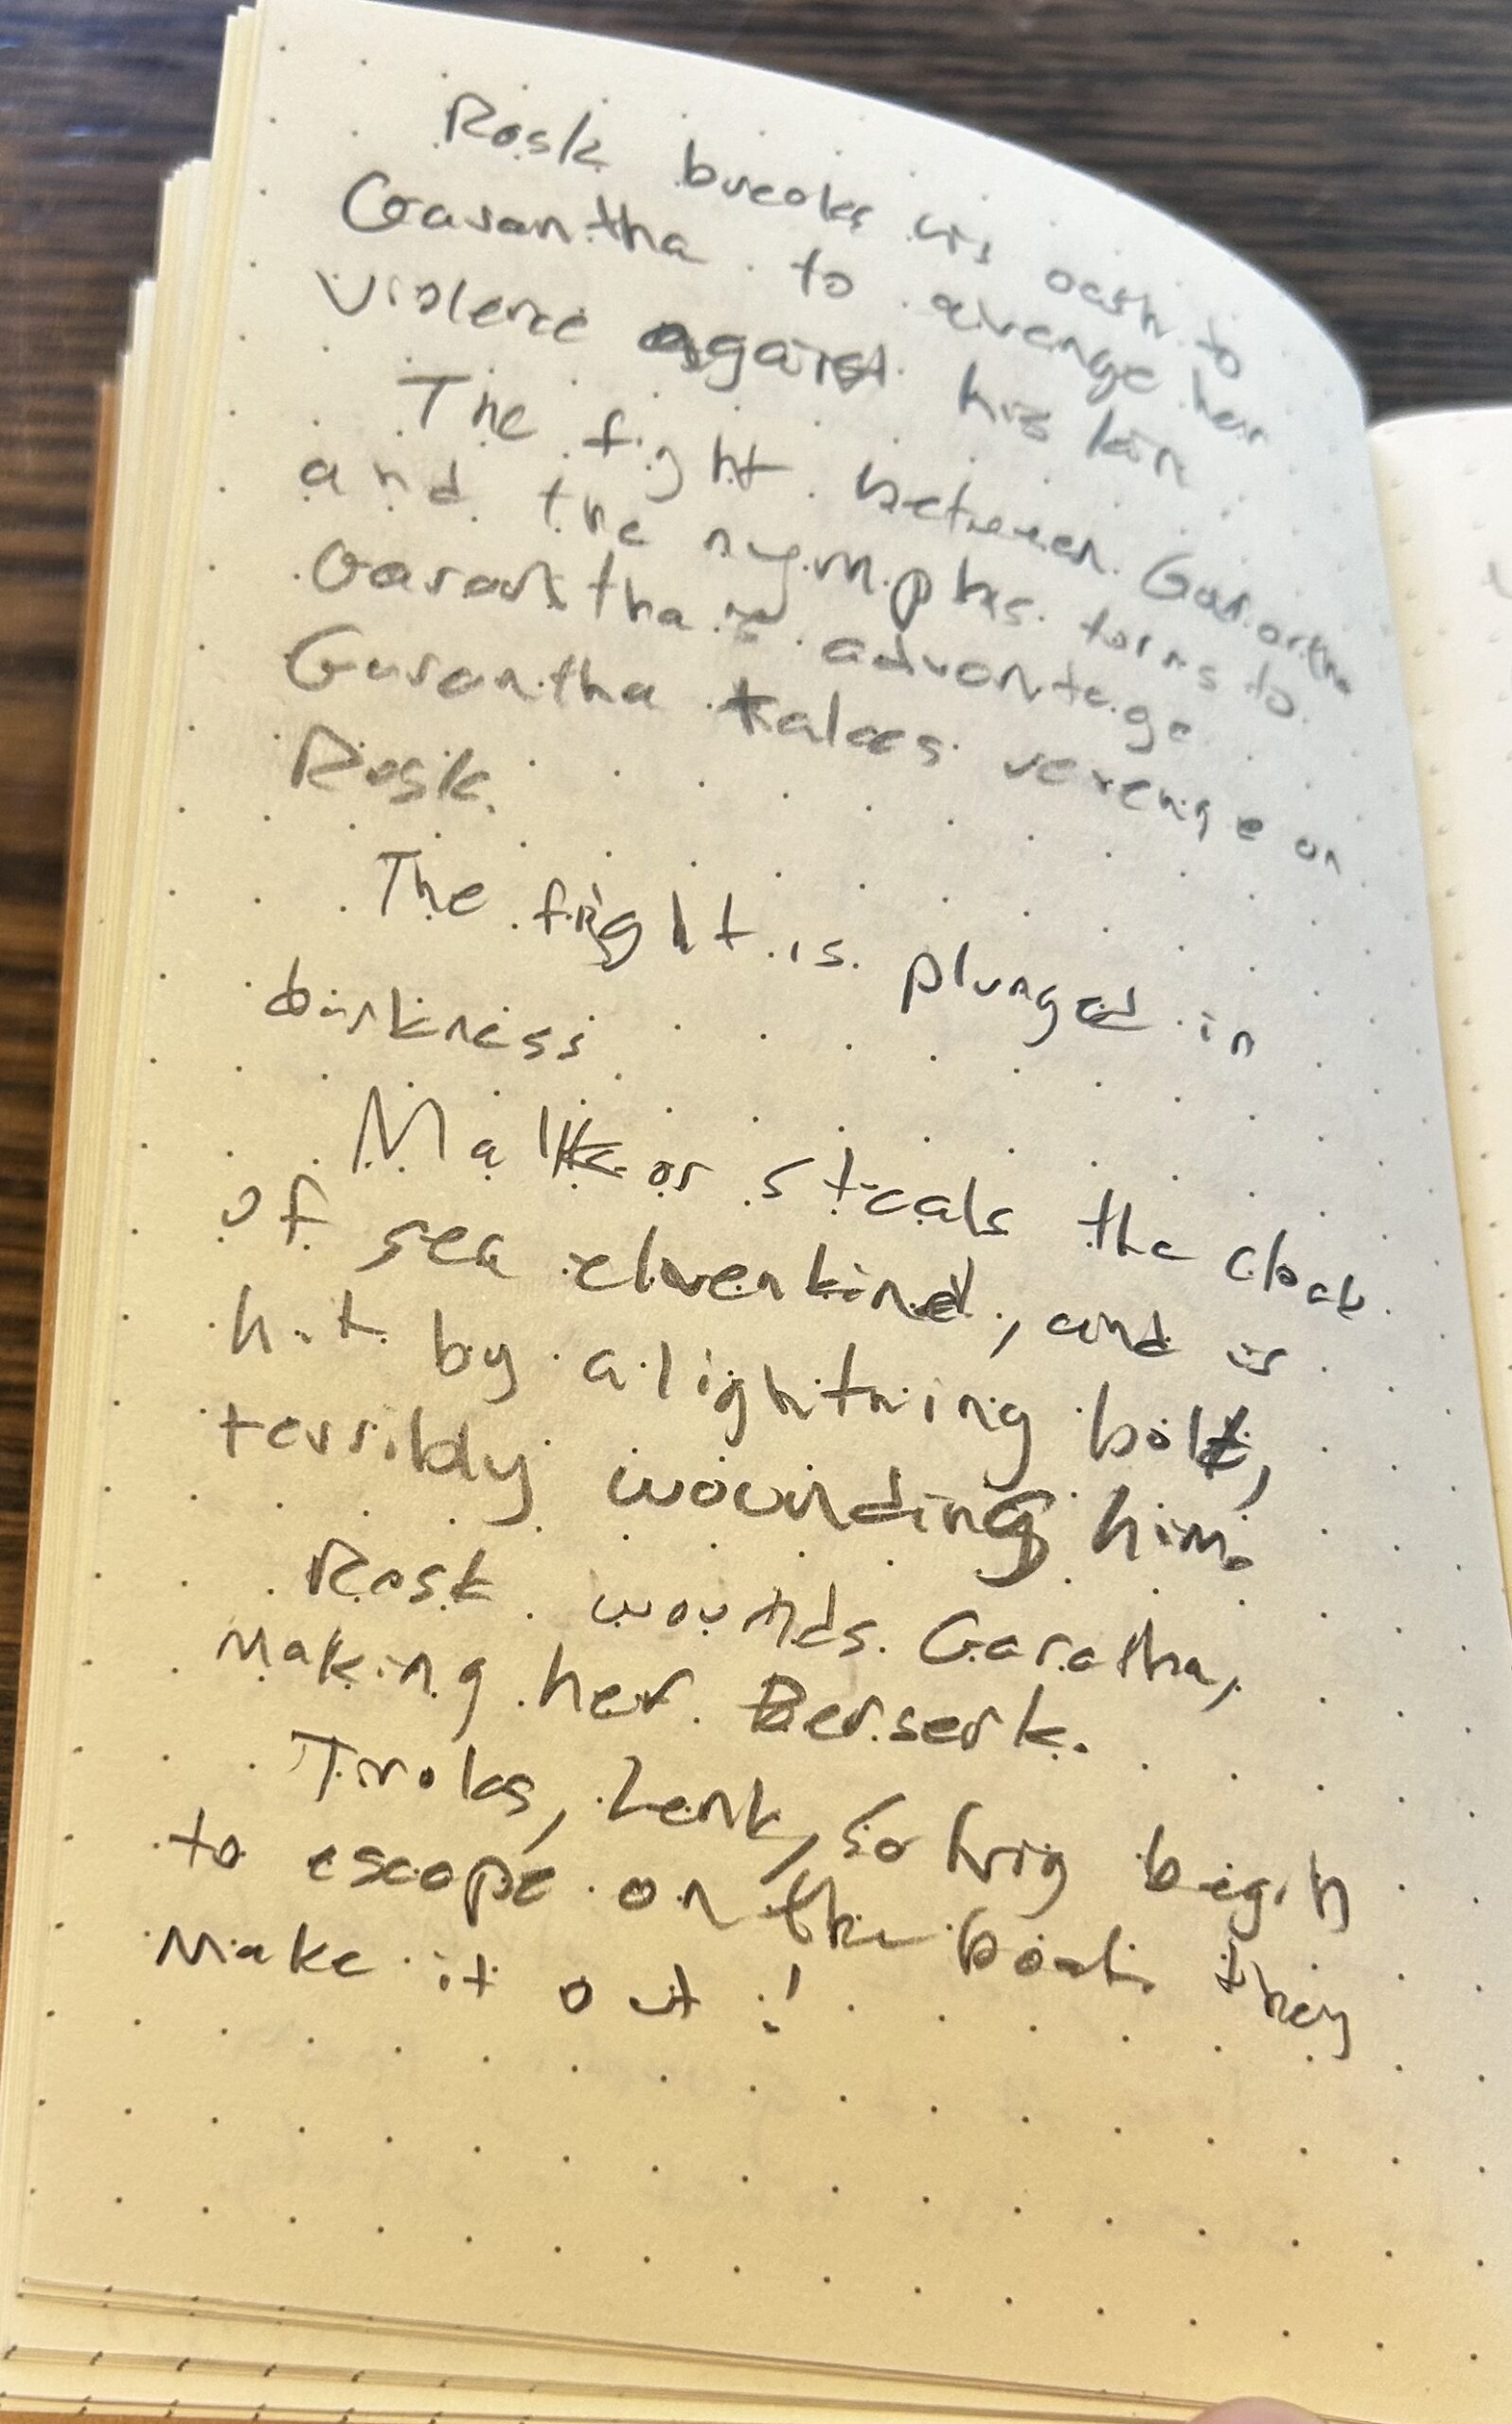 Rosk breaks his oath to
Garantha to avenge her
violence against his kin
The fight between Garantha
and the nymphs turns to
Garantha's advantage
Garantha takes revenge on
Rosk.
The fight is plunged in
darkness
Malkor steals the cloak
of sea elvenkind, and is
hit by a lightning bolt,
terribly wounding him.
Rosk wounds Garatha,
making her Berserk.
Troks, Lenk, Solvig begin
to escape on the boat. they
make it out!